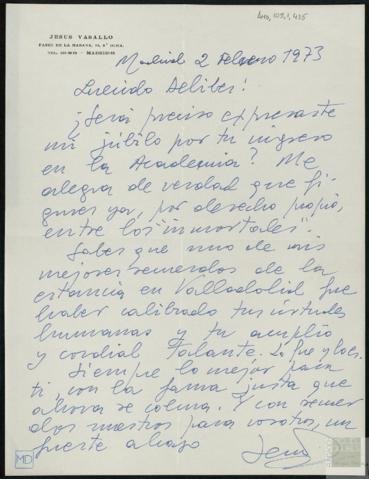 AMD, 109,1, 435
JESUS VASALLO
PASEO DE LA HABANA,
MADRID
Madrid 2 febrero 1973
Querido Delibes:
¿Será preciso expresarte
mi júbilo por tu ingreso
en la Academia? Me
alegra de verdad que fi-
gures ya, por derecho propio,
entre los "inmortales".
Sabes que uno de mis
mejores recuerdos de la
estancia en Valladolid fue
haber calibrado tus virtudes
humanas y tu amplio
y cordial talante. Lo fue y lo es.
Siempre lo mejor para
ti, con la fama justa que
ahora se colma. Y con recuer
dos nuestros para vosotros, un
fuerte abrazo
Jesús
MD